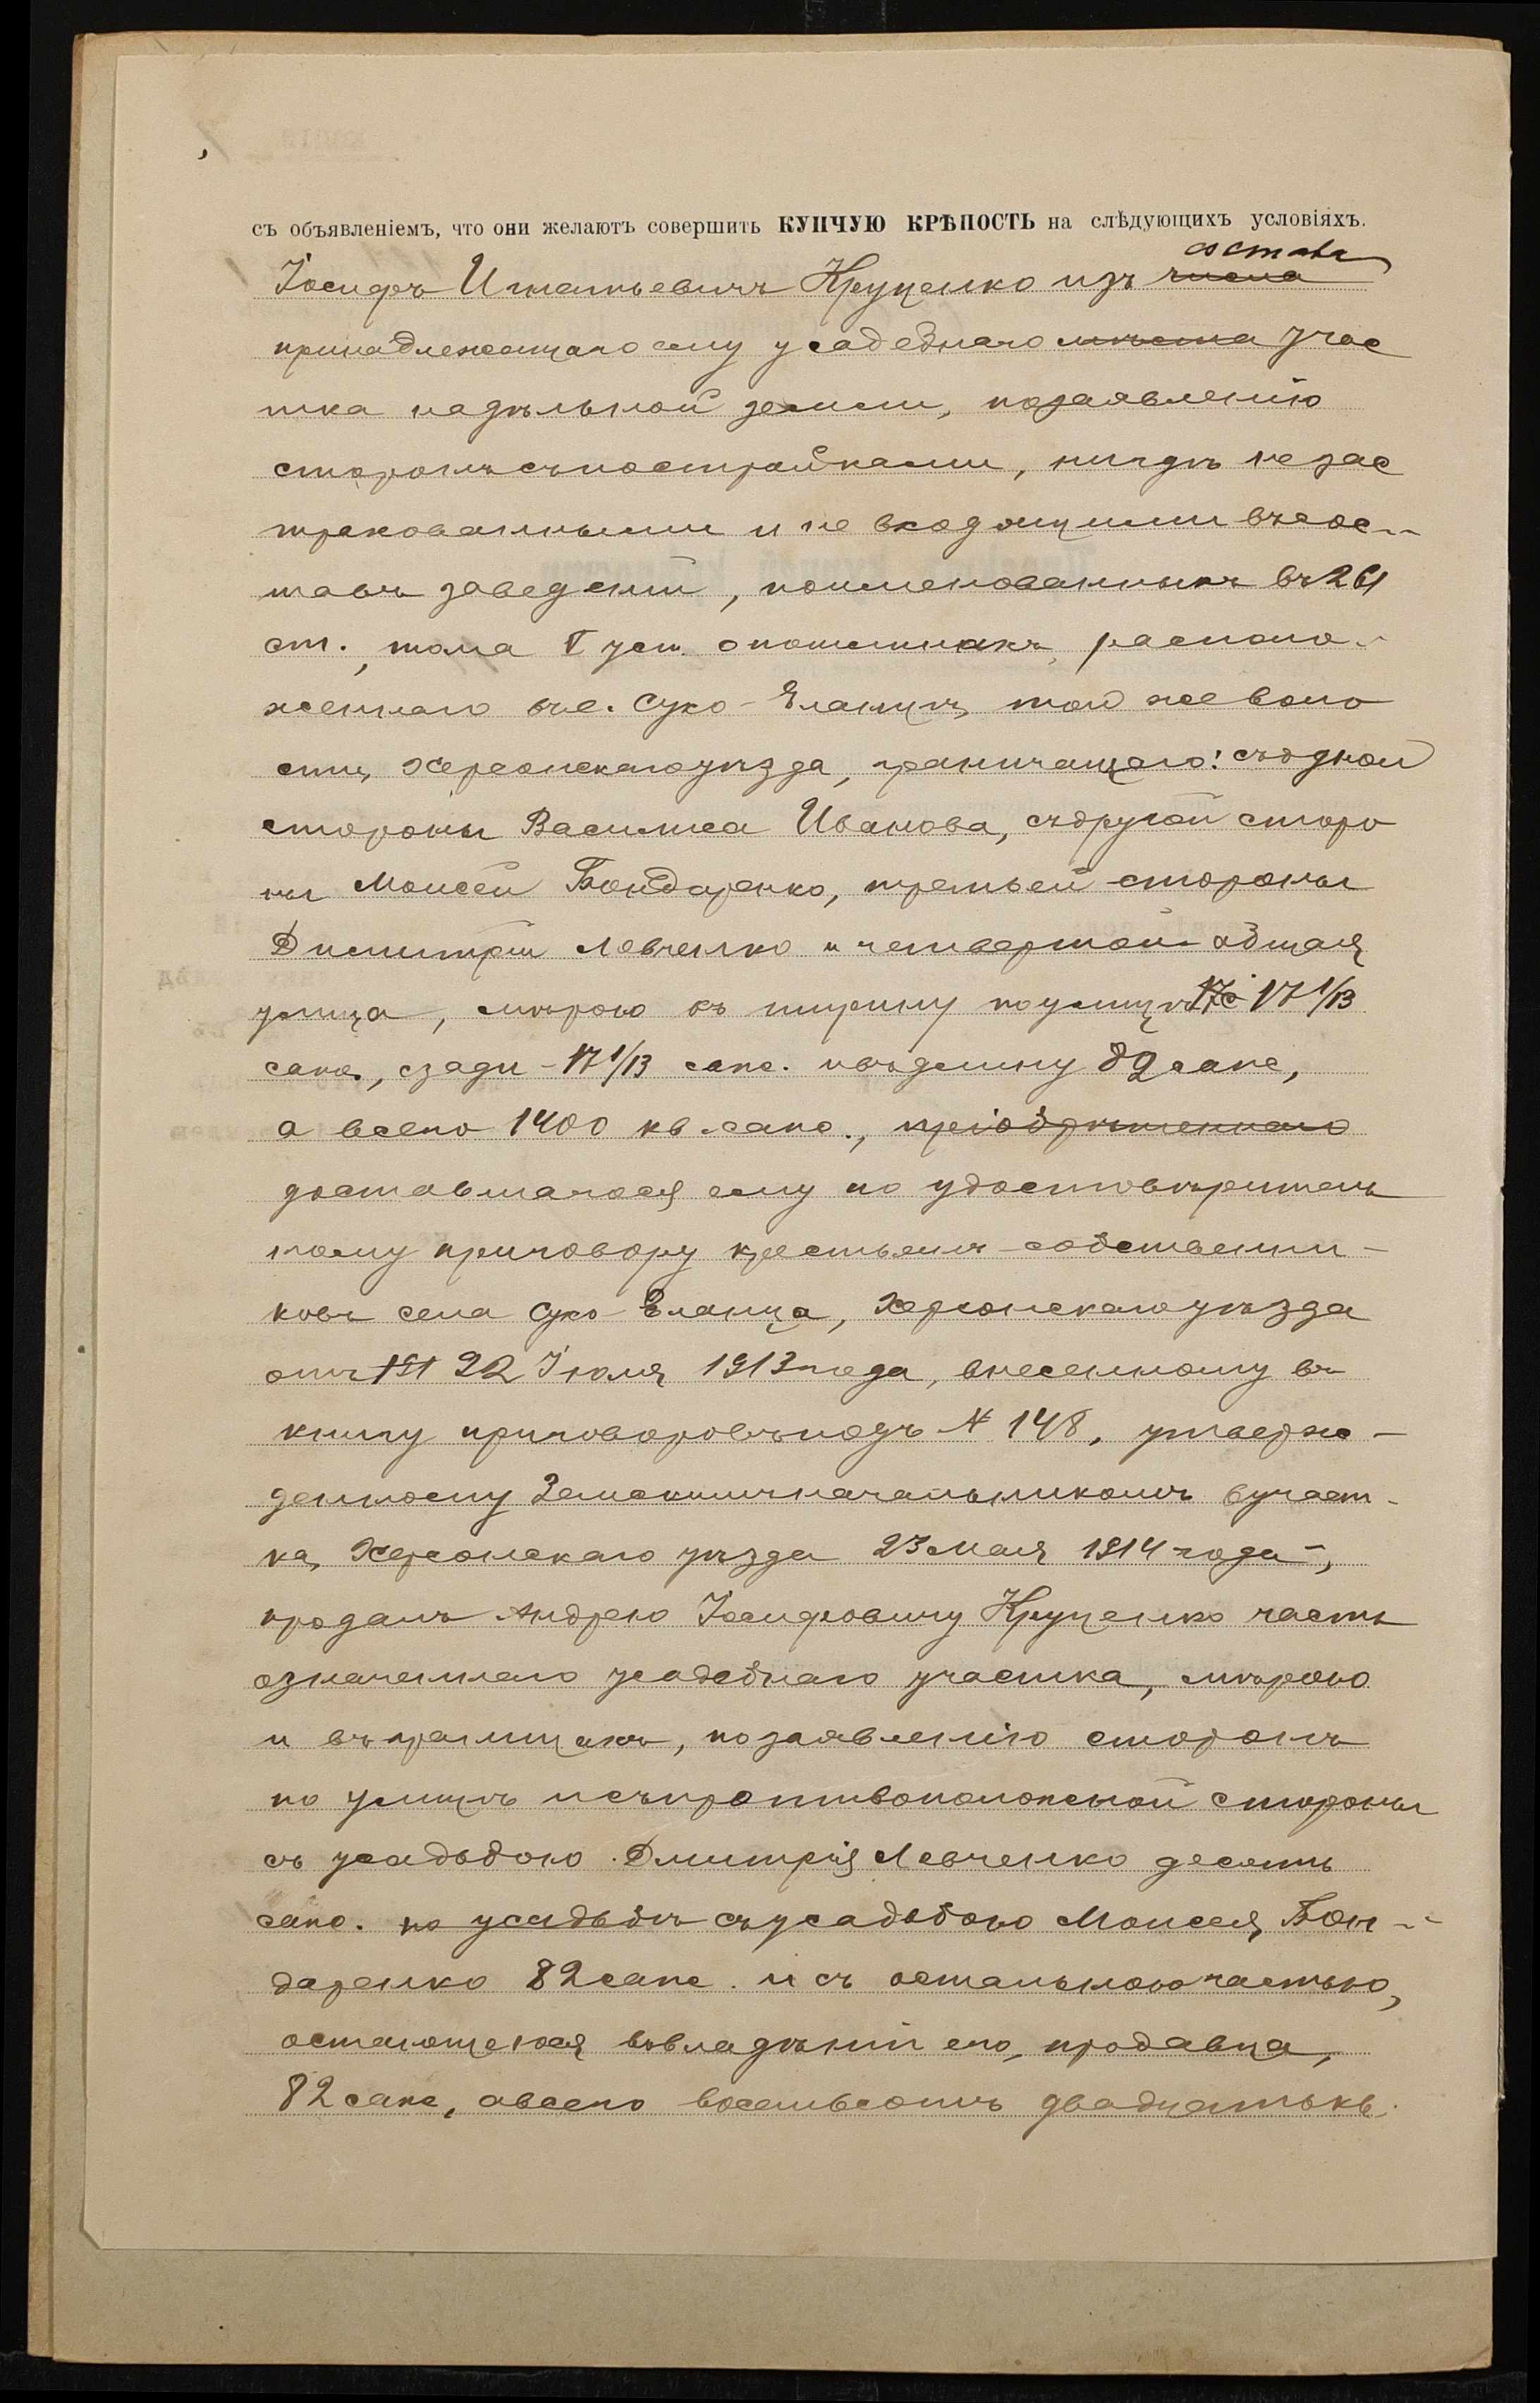 съ объявленіемъ, что они желаютъ совершить КУПЧУЮ КРѢПОСТЬ на слѣдующихъ условіяхъ.
состава
Іосифъ Игнатьевичъ Круценко изъ числа
принадлежащаго ему усадебнаго мѣста учас
тка надѣльной земли, по заявленію
сторонъ съ постройками, нигдѣ не зас
трахованными и не входящими въ сос-
тавъ заведеній, поименованныхъ въ 261
ст., тома V уст. о пошлинахъ, располо-
женнаго въ с. Сухо-Еланцѣ, той же воло
сти, Херсонскаго уѣзда, граничащаго: съ одной
стороны Василиса Иванова, съ другой сторо
ны Моисей Бондаренко, третьей стороны
Димитрій Левченко и четвертой общая
улица, мѣрою въ ширину по улицѣ 17 1/13
саж., сзади - 17 1/13 саж. и въ длину 82 саж,
а всего 1400 кв. саж., пріобрѣтеннаго
доставшагося ему по удостовѣритель
ному приговору крестьянъ-собственни-
ковъ села Сухо-Еланца, Херсонскаго уѣзда
отъ 22 Іюля 1913 года, внесенному въ
книгу приговоровъ подъ № 148, утверж-
денному Земскимъ начальникомъ участ-
ка, Херсонскаго уѣзда 23 мая 1914 года,
продалъ Андрею Іосифовичу Круценко часть
означеннаго усадебнаго участка, мѣрою
и въ границахъ, по заявленію сторонъ
по улицѣ и съ противоположной стороны
съ усадьбою Дмитрія Левченко десять
саж. по усадьбѣ съ усадьбою Моисея Бон-
даренко 82 саж. и съ остальною частью,
остающеюся въ владѣніи его, продавца,
82 саж, а всего восемьсотъ двадцать кв.